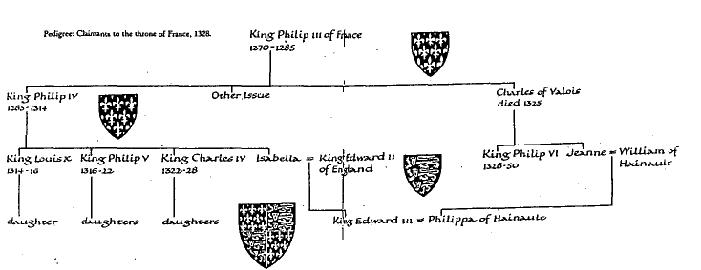 Pedigree: Claimants to the throne of France, 1328.
King Philip III of France
1270-1285
King Philip IV
1285-1314
Other Issue
Charles of Valois
died 1325
King Louis X
1314-16
King Philip V
1316-22
King Charles IV
1322-28
Isabella = King Edward II
of England
King Philip VI
1328-50
Jeanne = William of
Hainault
daughter
daughters
daughters
King Edward III = Philippa of Hainault